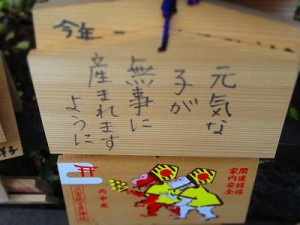 今年
元気な
子が
無事に
産まれます
ように
開運招福
家内安全